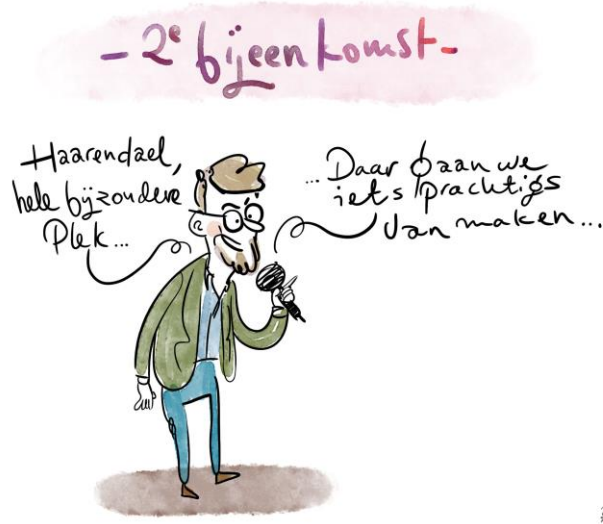 - 2e bijeenkomst -
Haarendael,
hele bijzondere
Plek...
... Daar gaan we
iets prachtigs
van maken...